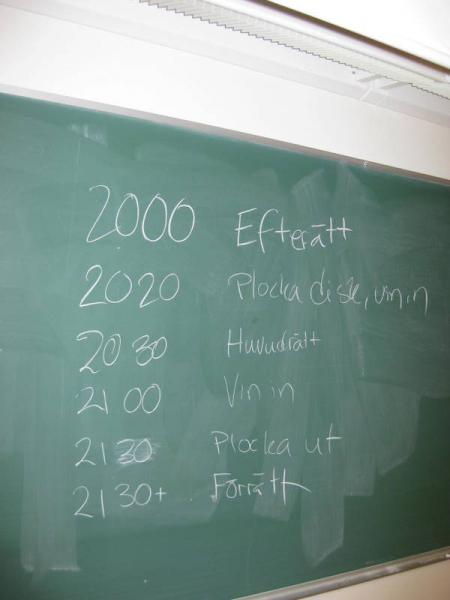 2000 Efterätt
2020 Plocka disk, vin in
2030 Huvudrätt
2100 Vin in
2130 Plocka ut
2130+ Förrätt